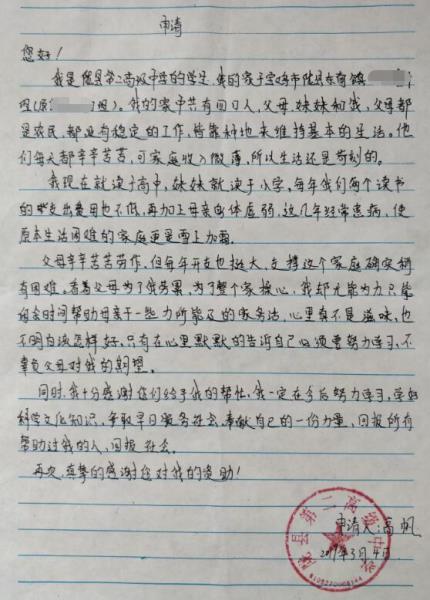 申请
您好！
我是陇县第二高级中学的学生，我的家于宝鸡市陇县东南镇
组（原    组）。我的家中共有四口人，父母、妹妹和我，父母都
是农民，都没有稳定的工作，皆靠种地来维持基本的生活。他
们每天都辛辛苦苦，可家庭收入微薄，所以生活还是苛刻的。
我现在就读于高中，妹妹就读于小学，每年我们两个读书
的支出费用也不低，再加上母亲身体虚弱，这几年经常患病，使
原本生活困难的家庭更是雪上加霜。
父母辛辛苦苦劳作，但每年开支也挺大，支撑这个家庭确实稍
有困难。看着父母为了我劳累，为了整个家操心，我却无能为力只能
抽空时间帮助母亲干一些力所能及的家务活，心里真不是滋味，也
不明白该怎样好，只有在心里默默的告诉自己必须要努力学习，不
辜负父母对我的期望。
同时，我十分感谢您们给予我的帮忙，我一定在今后努力学习，学好
科学文化知识，争取早日服务社会，奉献自己的一份力量，回报所有
帮助过我的人，回报社会。
再次，真挚的感谢您对我的资助！
申请人：高帆
陇县第二高级中学
3月4日